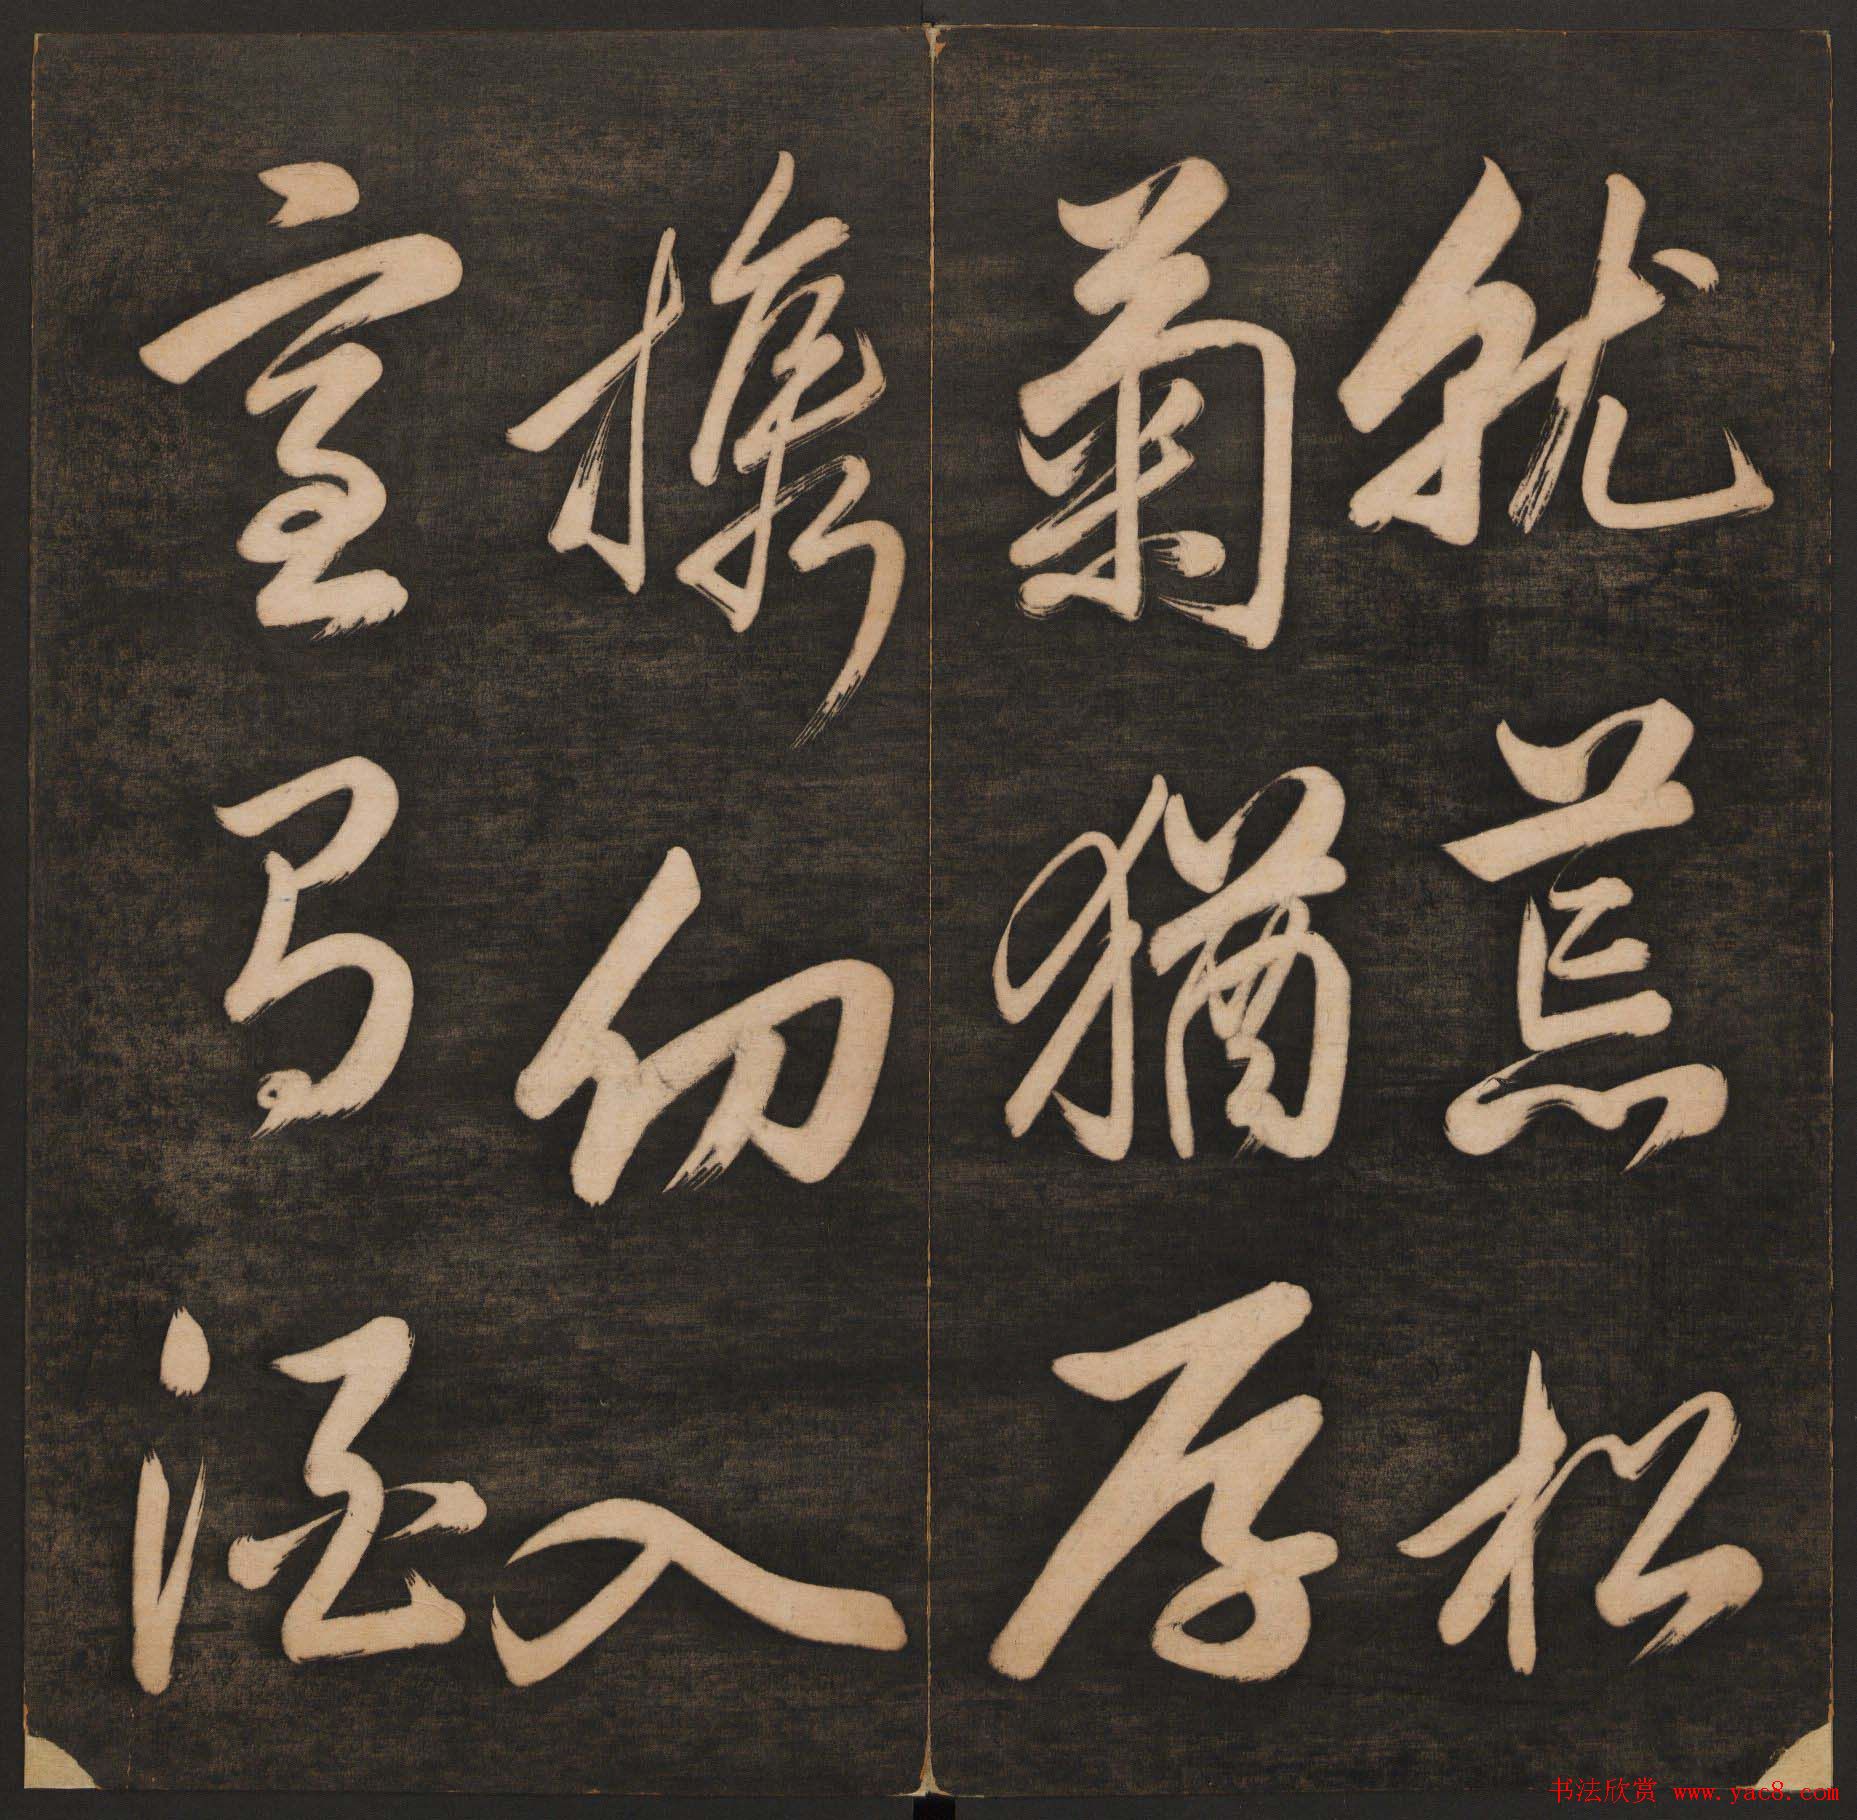 就荒松
菊猶存
攜幼入
室有酒
书法欣赏 www.yac8.com